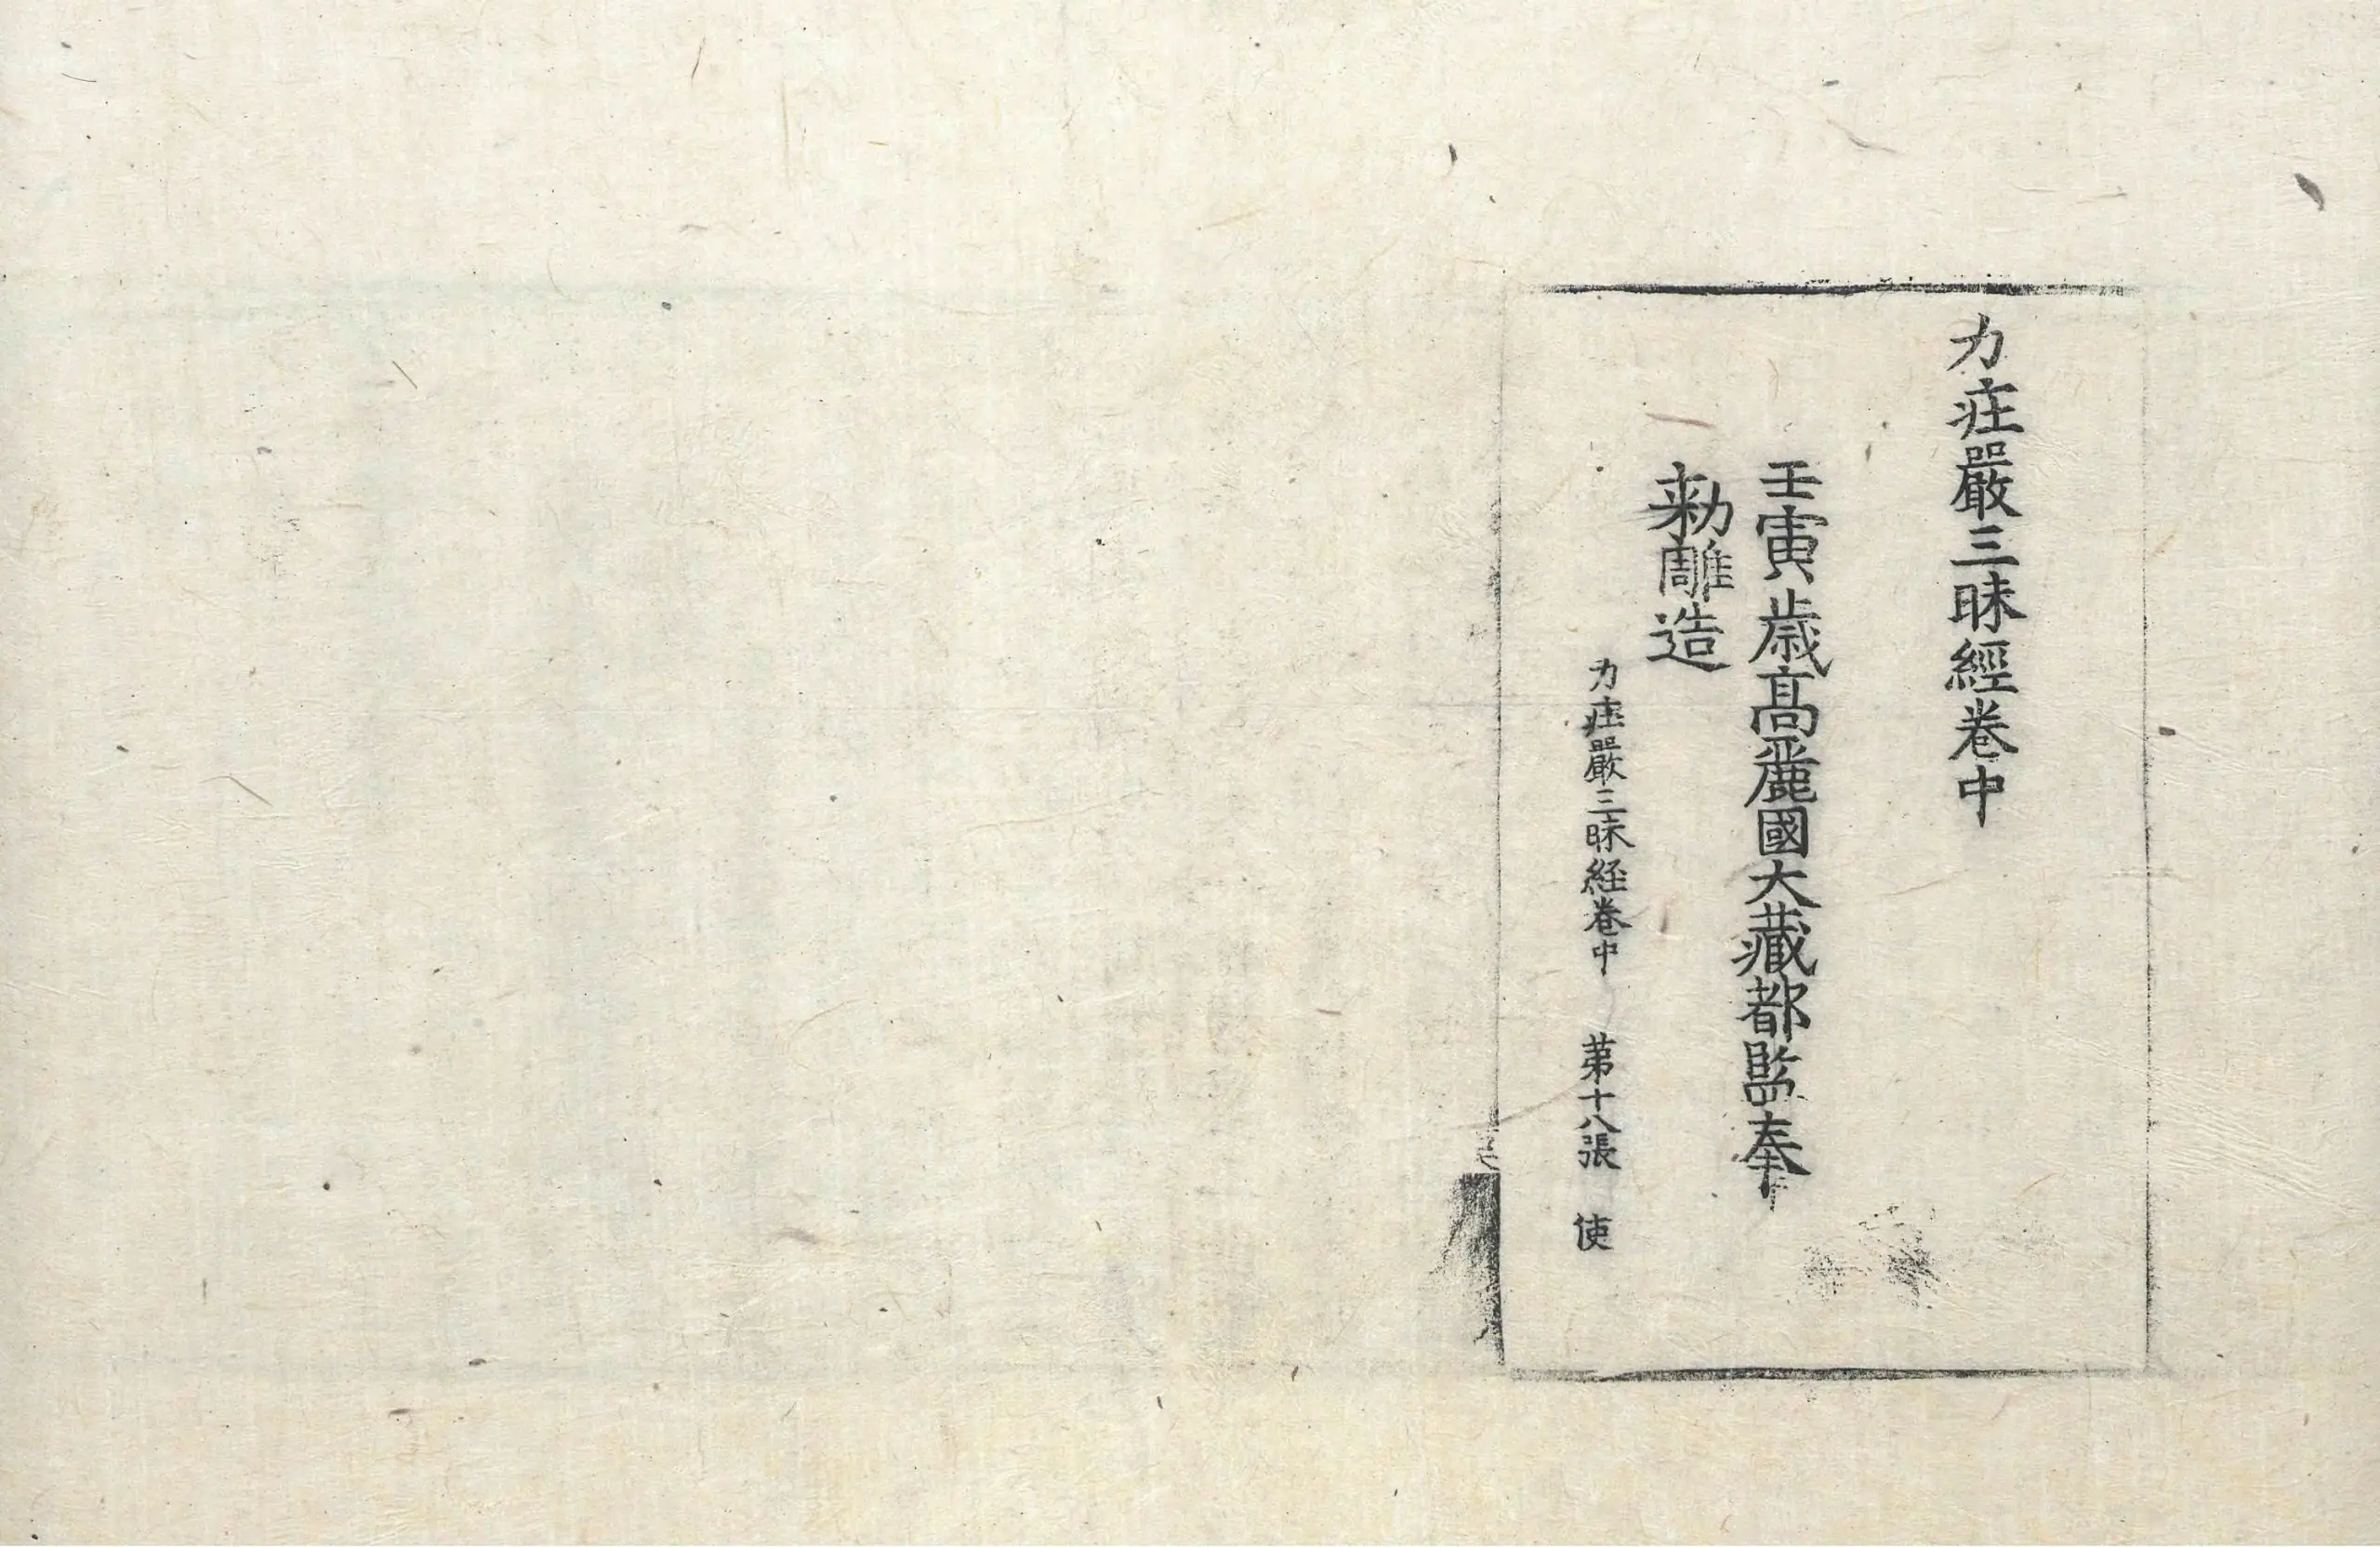 力莊嚴三昧經卷中
壬寅歲高麗國大藏都監奉
勑雕造
力莊嚴三昧經卷中 第十八張 使